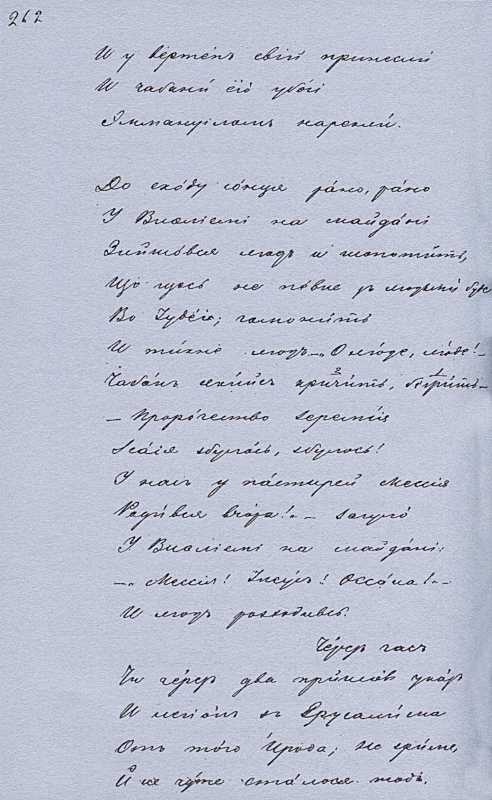 262
И у вертепъ свій принесли
И чабани єїо убогі
Эммануіломъ нарекли.
До сходу сонця рано, рано
У Виѳліемі на майдані
Зійшовся людъ и шопотить,
Що щось не повне зъ людьми буде
Во Іудеіє; гомонить
И тихне людъ. — „О люде, люде! —
Чабанъ якийсь кричить, біжить —
— Пророчество Ереміи
Ісаія збулось, збулось!
У насъ у пастирей Мессія
Родився вчора!“ — Загуло
У Виѳліемі на майдані:
— „Мессія! Ісусъ! Оссана!“ —
И людъ розходивсь.
Черезъ часъ
Чи черезъ два прийшовъ указъ
И легіонъ зъ Ерусалима
Отъ того Ирода; не зриме,
Й не чуте сталося тоді.